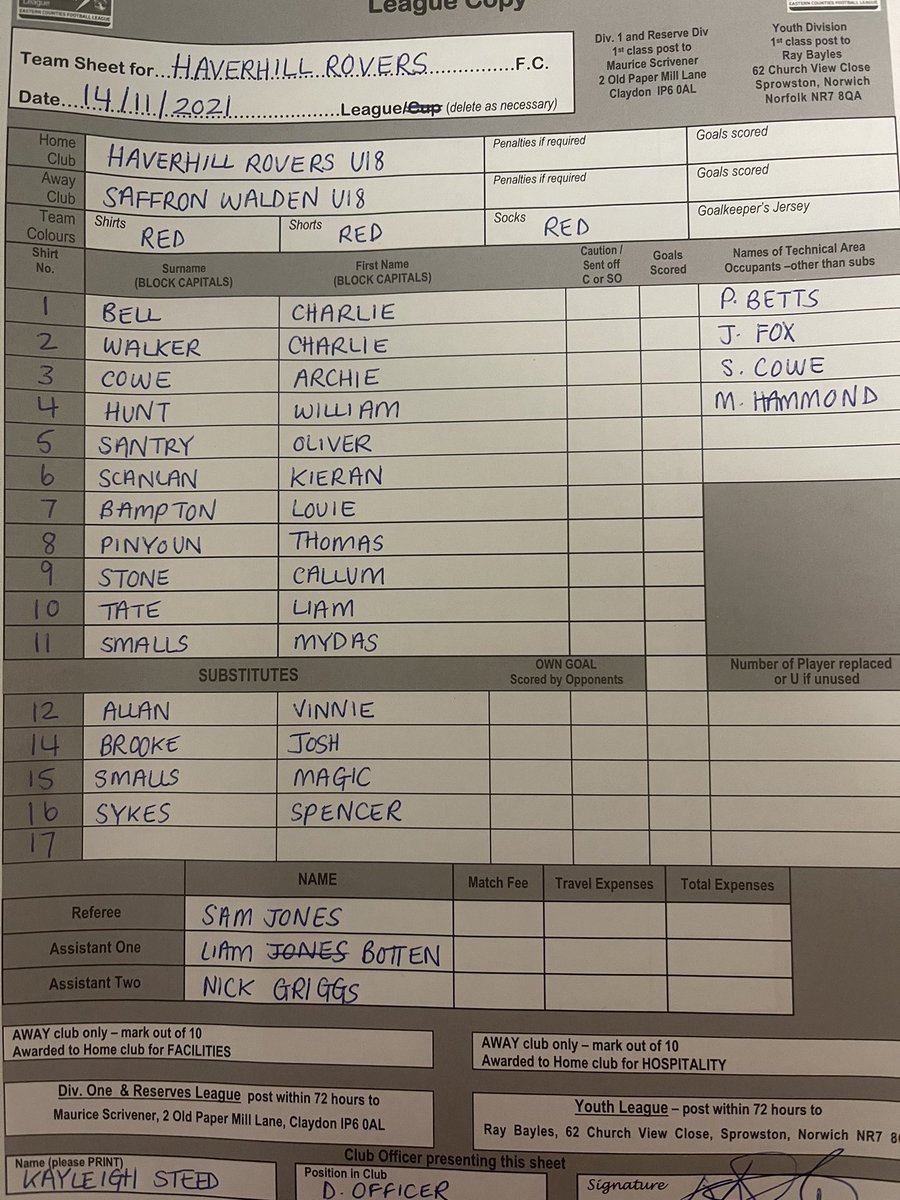 League
EASTERN COUNTIES FOOTBALL LEAGUE
League Copy
EASTERN COUNTIES FOOTBALL LEAGUE
Team Sheet for...HAVERHILL ROVERS............F.C.
Date....14/11/2021....................League/Cup (delete as necessary)
Div. 1 and Reserve Div
1st class post to
Maurice Scrivener
2 Old Paper Mill Lane
Claydon IP6 0AL
Youth Division
1st class post to
Ray Bayles
62 Church View Close
Sprowston, Norwich
Norfolk NR7 8QA
Home Club HAVERHILL ROVERS U18 Penalties if required Goals scored
Away Club SAFFRON WALDEN U18 Penalties if required Goals scored
Team Colours Shirts RED Shorts RED Socks RED Goalkeeper's Jersey
Shirt No. Surname (BLOCK CAPITALS) First Name (BLOCK CAPITALS) Caution / Sent off C or SO Goals Scored Names of Technical Area Occupants –other than subs
1 BELL CHARLIE P. BETTS
2 WALKER CHARLIE J. FOX
3 COWE ARCHIE S. COWE
4 HUNT WILLIAM M. HAMMOND
5 SANTRY OLIVER
6 SCANLAN KIERAN
7 BAMPTON LOUIE
8 PINYOUN THOMAS
9 STONE CALLUM
10 TATE LIAM
11 SMALLS MYDAS
SUBSTITUTES OWN GOAL Scored by Opponents Number of Player replaced or U if unused
12 ALLAN VINNIE
14 BROOKE JOSH
15 SMALLS MAGIC
16 SYKES SPENCER
17
NAME Match Fee Travel Expenses Total Expenses
Referee SAM JONES
Assistant One LIAM JONES BOTTEN
Assistant Two NICK GRIGGS
AWAY club only – mark out of 10
Awarded to Home club for FACILITIES
AWAY club only – mark out of 10
Awarded to Home club for HOSPITALITY
Div. One & Reserves League post within 72 hours to
Maurice Scrivener, 2 Old Paper Mill Lane, Claydon IP6 0AL
Youth League – post within 72 hours to
Ray Bayles, 62 Church View Close, Sprowston, Norwich NR7 8
Club Officer presenting this sheet
Name (please PRINT) KAYLEIGH STEED
Position in Club D. OFFICER
Signature